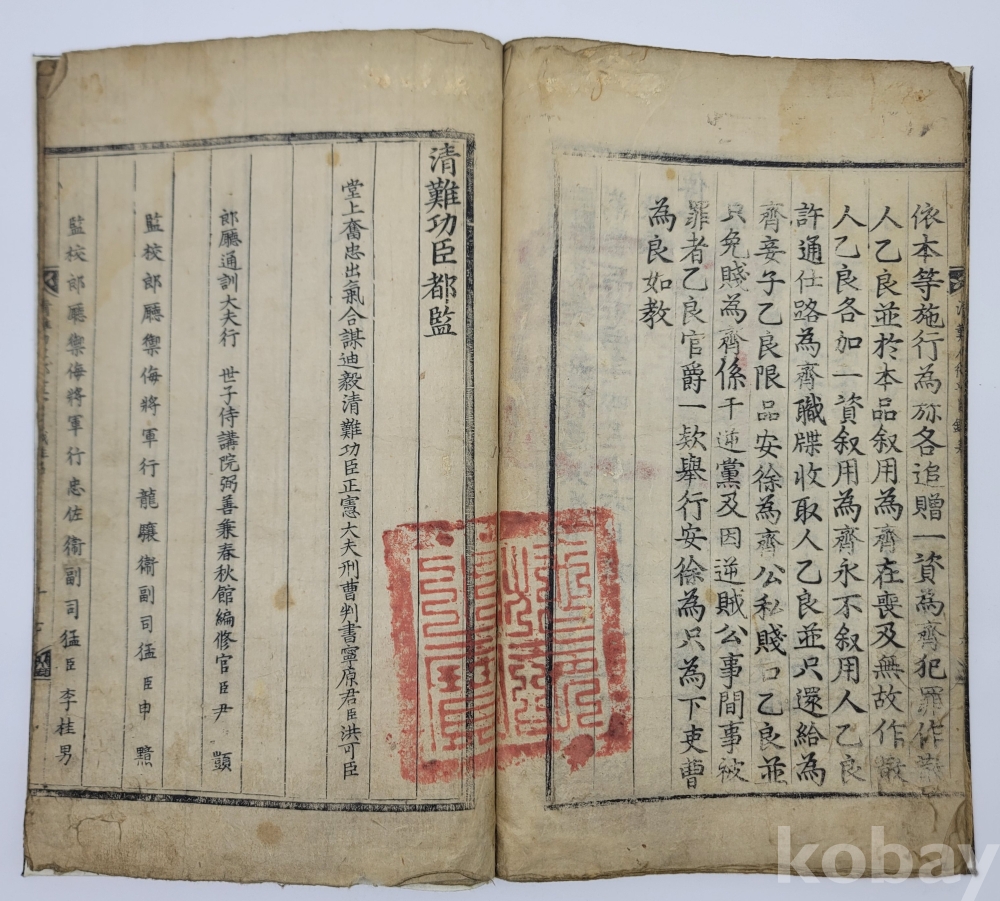 依本等施行為㢱各追贈一資為齊犯罪作散
人乙良並於本品叙用為齊在喪及無故作散
人乙良各加一資叙用為齊永不叙用人乙良
許通仕路為齊職牒收取人乙良並只還給為
齊妾子乙良限品安徐為齊公私賤口乙良並
只免賤為齊係干逆黨及因逆賊公事間事被
罪者乙良官爵一欵舉行安徐為只為下吏曹
為良如教
清難功臣都監
堂上奮忠出氣合謀迪毅清難功臣正憲大夫刑曹判書寧原君臣洪可臣
郎廳通訓大夫行 世子侍講院弼善兼春秋館編修官臣尹 顗
監校郎廳禦侮將軍行龍驤衛副司猛臣申 黯
監校郎廳禦侮將軍行忠佐衛副司猛臣李桂男
kobay